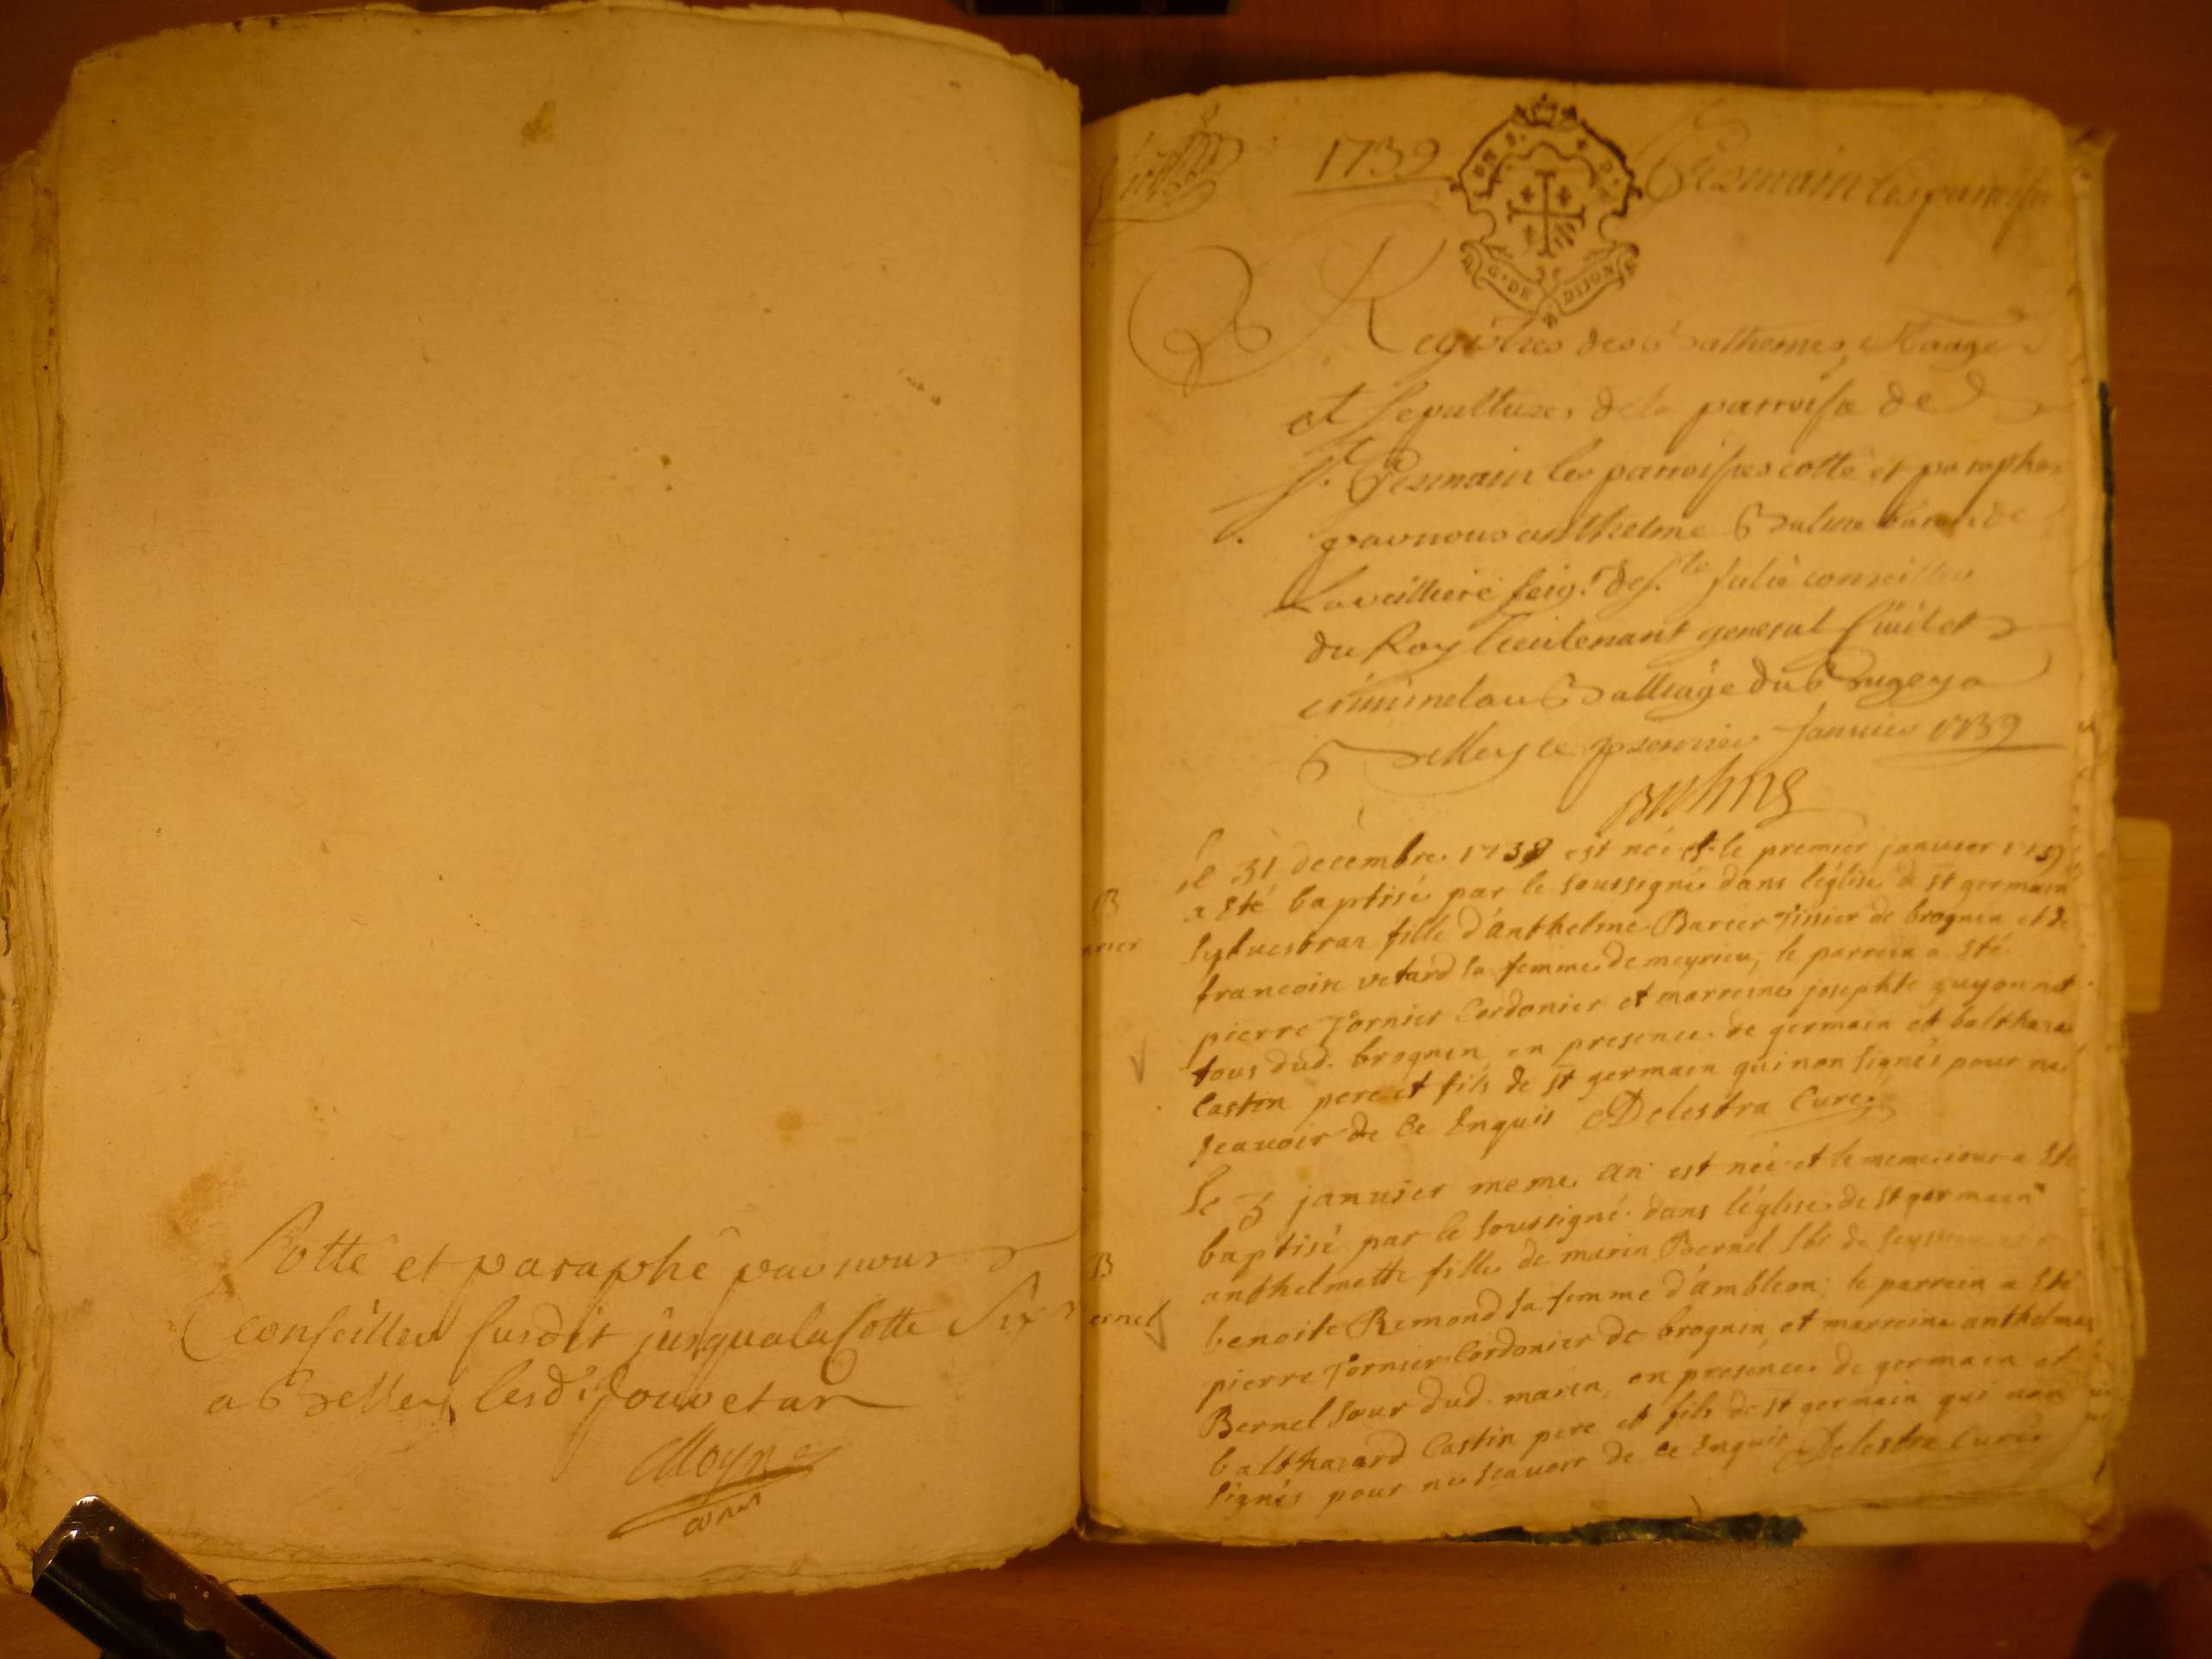 Cotté et paraphé par nous
Conseiller susdit jusqua la Cotte Six
a Belley lesd. Jour et an
1739
G.^L DE DIJON
Germain les paroisses
Registres des Bathemes, Mariages
et sepultures de la parroisse de
S.^t Germain les parroisses cotté et paraphé
par nous anthelme
seig.^r de S.^te Julie conseiller
du Roy Lieutenant general Civil et
criminel au Balliage du Bugey a
Belley le premier Janvier 1739
le 31 decembre 1738 est neé et le premier janvier 1739
a eté baptisé par le soussigné dans l'église de st germain
fille d'anthelme Barier tissier de brognin et de
francoise vetard sa femme de meyrieu, le parrein a eté
pierre fornier Cordonier et marreine josephte guyonnet
tous dud. brognin en presence de germain et balthazar
Castin pere et fils de st germain qui non signés pour ne
scavoir de ce Enquis Delestra Curé
B
le 3 janvier meme an est neé et le meme jour a eté
baptisé par le soussigné dans l'église de st germain
anthelmette fille de marin Bernel
benoite Remond sa femme d'ambleon; le parrein a eté
pierre fornier Cordonier de brognin et marreine anthelme
Bernel sœur dud. marin, en presence de germain et
balthazard Castin pere et fils de st germain qui non
signés pour ne scavoir de ce enquis Delestra Curé
B
ernel